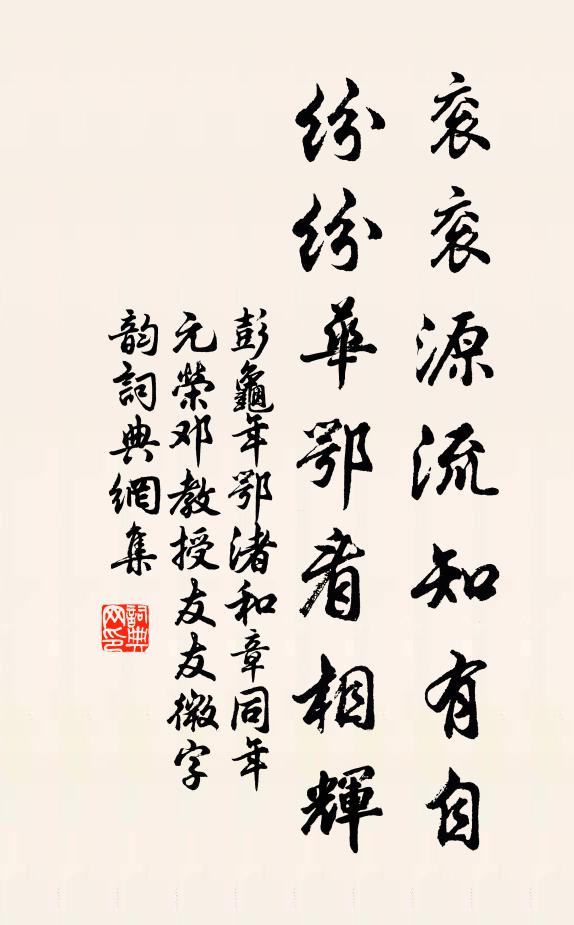 衮衮源流知有自
纷纷華鄂看相輝
彭龜年鄂渚和章同年
元榮邓教授友友微字
韵詞典網集
詞典网印